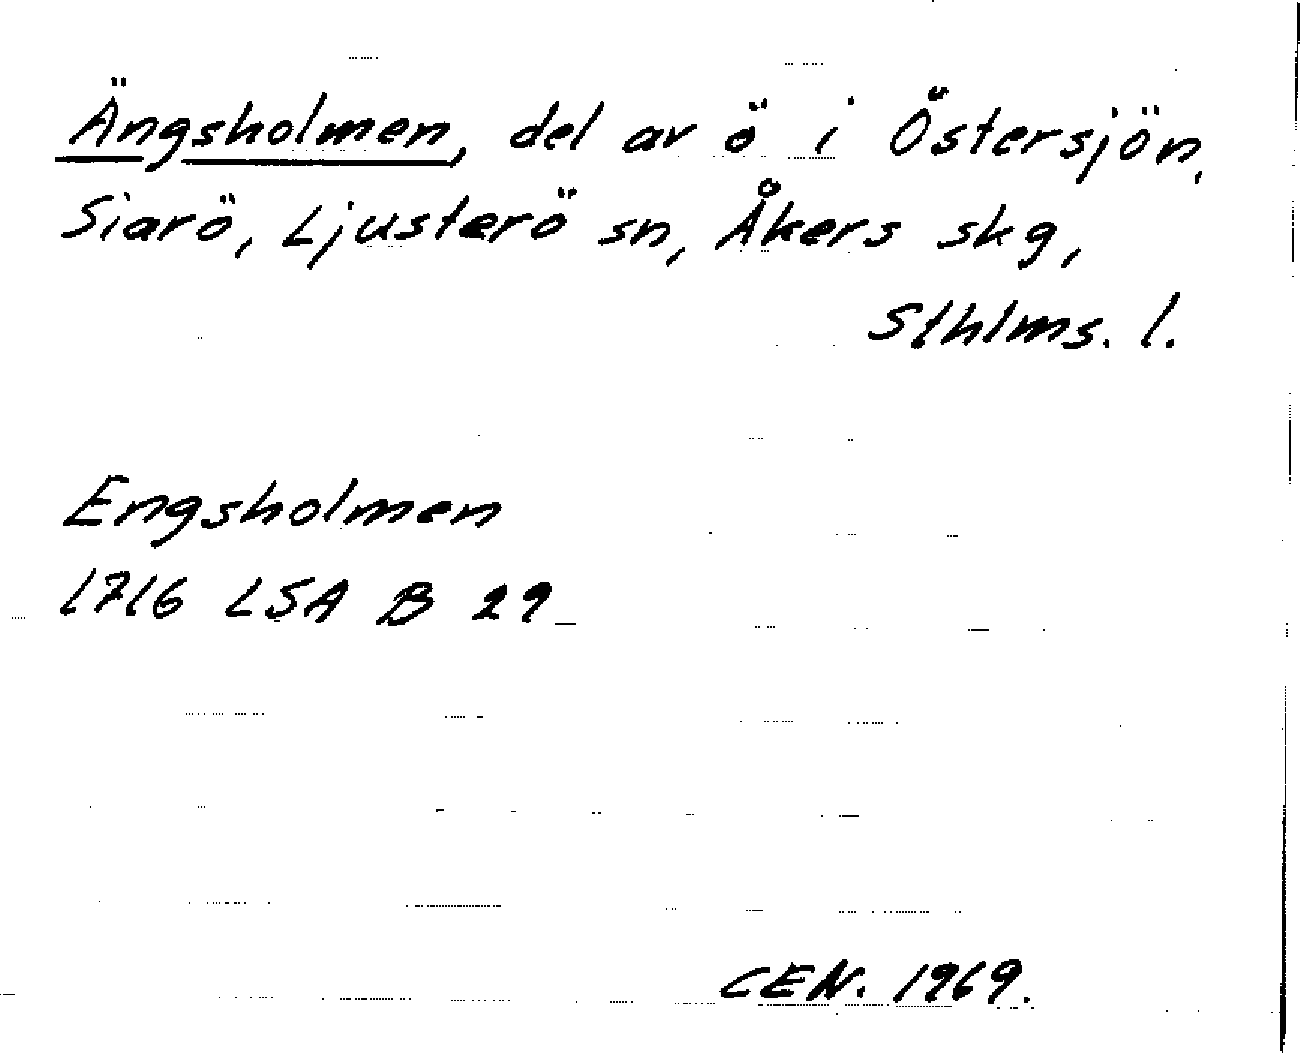 Ängsholmen, del av ö i Östersjön,
Siarö, Ljusterö sn, Åkers skg,
Sthlms. l.
Engsholmen
1716 LSA B 29
CEN. 1969.